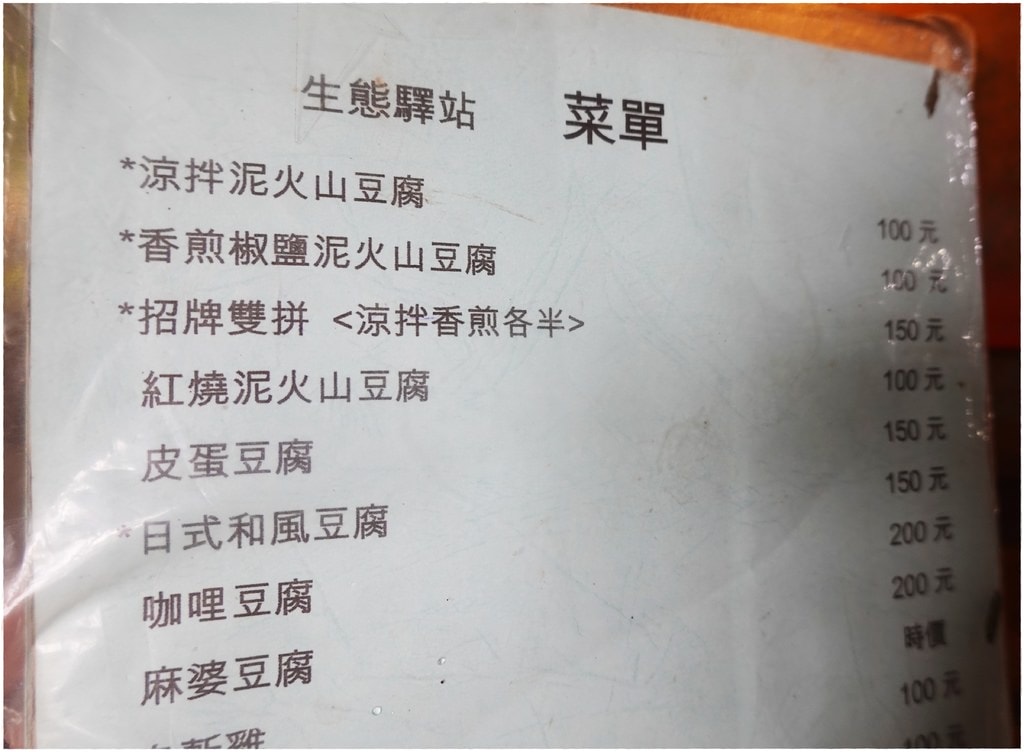 生態驛站 菜單
*涼拌泥火山豆腐 100 元
*香煎椒鹽泥火山豆腐 100 元
*招牌雙拼 <涼拌香煎各半> 150 元
紅燒泥火山豆腐 100 元
皮蛋豆腐 150 元
*日式和風豆腐 150 元
咖哩豆腐 200 元
麻婆豆腐 200 元
時價
100 元
100 元